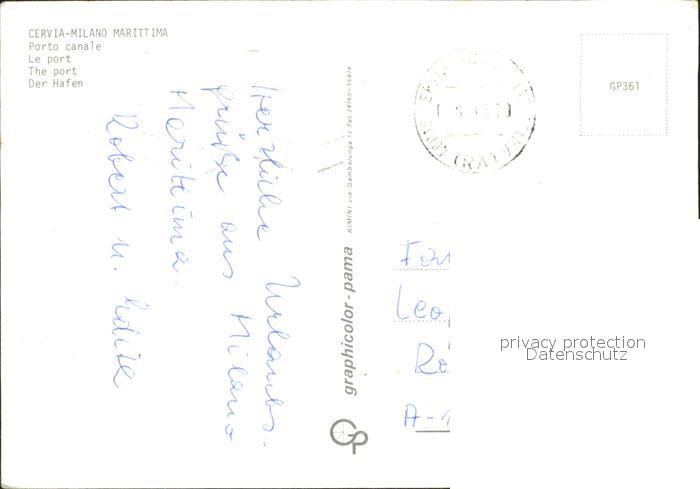 CERVIA-MILANO MARITTIMA
Porto canale
Le port
The port
Der Hafen
Herzliche Urlaubs-
grüße aus Milano
Marittima.
Robert u. Edith
graphicolor-pama
RIMINI via Gambalunga
GP361
(RA)
Leo
A-1
privacy protection
Datenschutz